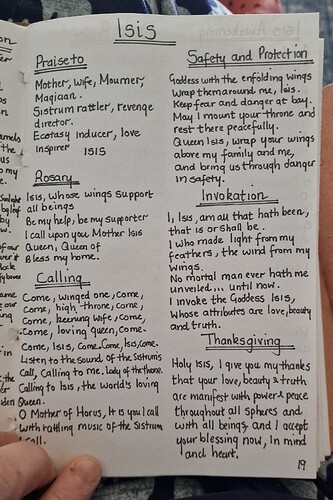 Isis
Praise to
Mother, Wife, Mourner,
Magician.
Sistrum rattler, revenge
director.
Ecstasy Inducer, love
Inspirer ISIS
Rosary
Isis, whose wings support
all beings
Be my help, be my supporter
I call upon you Mother Isis
Queen, Queen of
Bless my home.
Calling
Come, winged one, come,
Come, high throne, come,
Come, keening wife, come,
Come, loving queen, come.
Come, Isis, Come, Come, Isis, Come.
Listen to the sound of the Sistrum's
Call, Calling to me. Lady of the throne.
Calling to Isis, the World's loving
Queen.
O Mother of Horus, It is you I call
With rattling music of the Sistrum
I call.
Safety and Protection
Goddess with the enfolding wings
Wrap them around me, Isis.
Keep fear and danger at bay.
May I mount your throne and
rest there peacefully.
Queen Isis, wrap your wings
above my family and me,
and bring us through danger
in safety.
Invokation
I, Isis, am all that hath been,
that is or shall be.
I who made light from my
feathers, the wind from my
wings.
No mortal man ever hath me
unveiled... until now.
I invoke the Goddess ISIS,
Whose attributes are love, beauty
and truth.
Thanksgiving
Holy ISIS, I give you my thanks
that your love, beauty & truth
are manifest with power & peace
throughout all spheres and
with all beings and I accept
your blessing now, In mind
and heart.
19